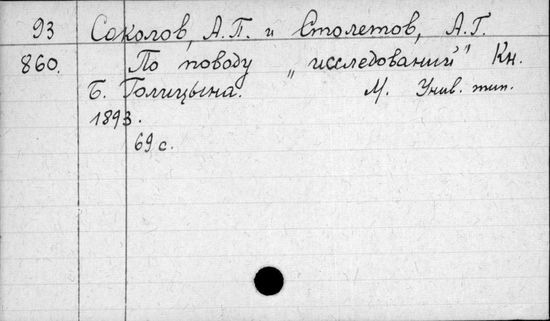 93 Соколов, А.П. и Столетов, А.Г.
860. По поводу „исследований" Кн.
Б. Голицына. М. Унив. тип.
1893.
69 с.